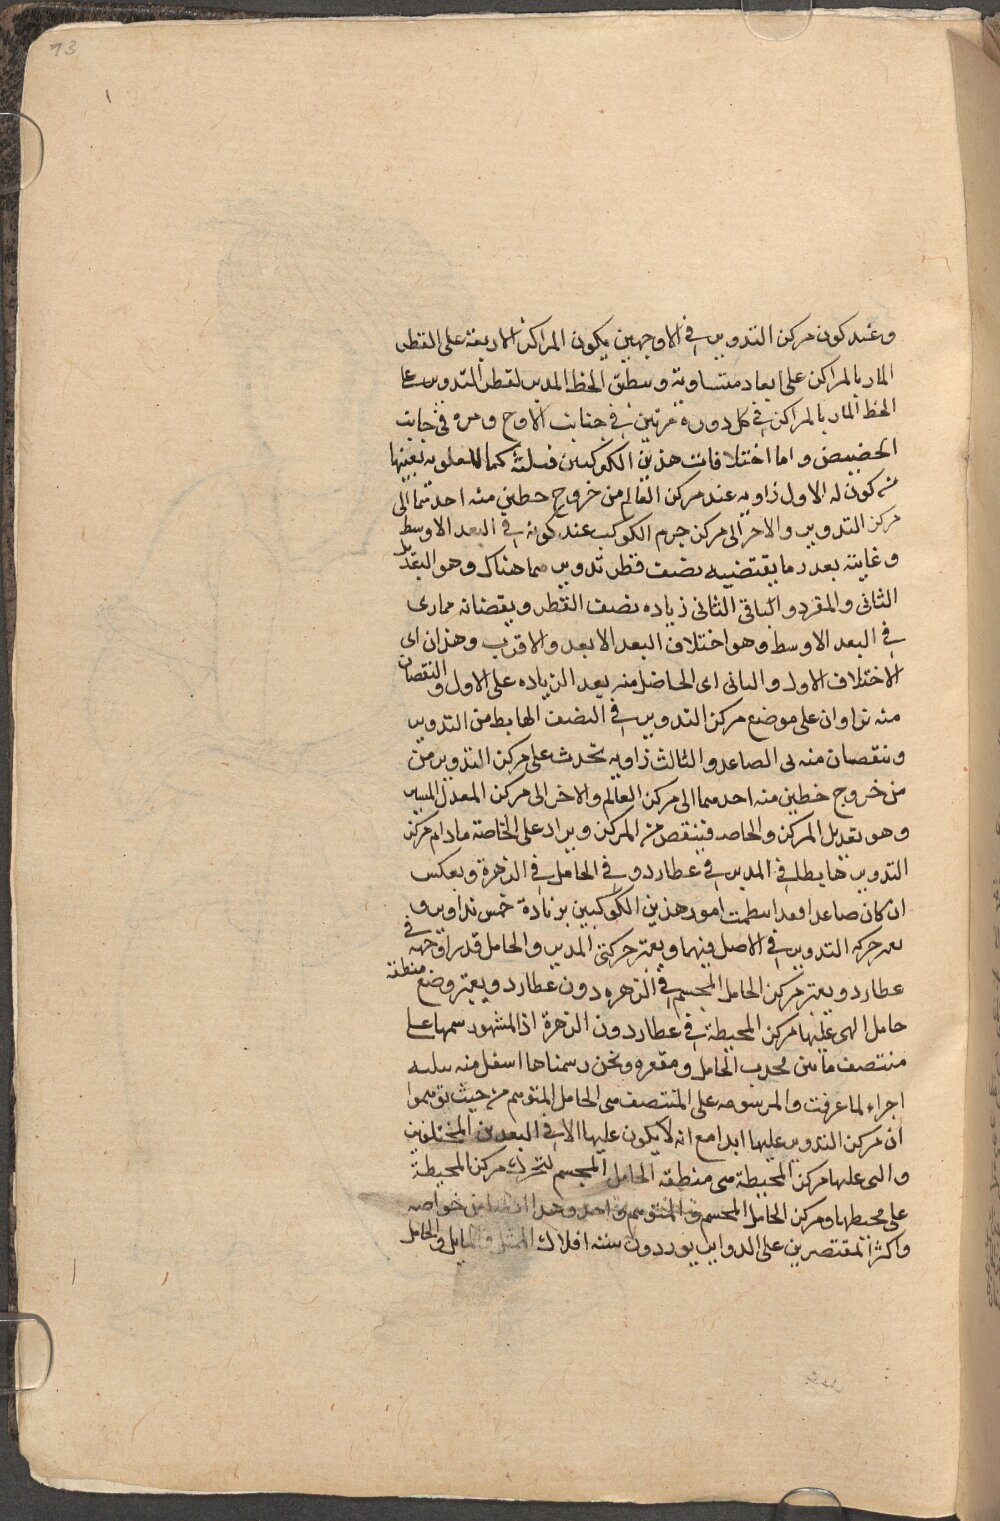 93
وعند كون مركز التدوير في الاوجهين يكون المراكز الاربعة على القطر
المار بالمراكز على ابعاد متساوية وينطبق الخط المدير لقطر التدوير على
الخط المار بالمراكز في كل دورة مرتين في جنابت الاوج ومرة في جابت
الحضيض واما اختلافات هذين الكوكبين فثلثة كما للعلوية بعينها
من كون له الاول زاوية عند مركز العالم من خروج خطين منه احدهما الى
مركز التدوير والاخر الى مركز جرم الكوكب عند كونه في البعد الاوسط
وغايته بعد رما يقتضيه نصف قطر تدوير مما هناك وهو التعديل
الثانى والمفرد والباقى الثانى زياده نصف القطر ونقصانه مما رى
في البعد الاوسط وهو اختلاف البعد الابعد والاقرب وهذان اى
الاختلاف الاول والثانى اى الحاصل منه بعد الزياده على الاول والنقصان
منه يزاد ان على موضع مركز التدوير في النصف الهابط من التدوير
وينقصان منه فى الصاعد والثالث زاوية تحدث على مركز التدوير من
من خروج خطين منه احدهما الى مركز العالم والاخر الى مركز المعدل المسير
وهو تعديل المركز والخاصه فينقص من المركز ويزاد على الخاصة مادام مركز
التدوير هابطا في المدير في عطارد وفي الحامل في الزهرة وبعكس
ان كان صاعدا فقد انتظمت امور هذين الكوكبين بزيادة خمس تداوير و
حركه التدوير في الاصل فيهما ويعتبر حركتى المدير والحامل قدر اوجيه في
عطارد ويعتبر مركز الحامل المجسم في الزهره دون عطارد ويعتبر وضع منطقة
حامل التى عليها مركز المحيطة في عطارد دون الزهرة اذ المشهور سمها على
منتصف ما بين محدب الحامل ومقعره ونحن رسمناها اسفل منه
اجراء لما عرفت والمرسومه على المنتصف هى الحامل المتوسم من حيث توهموا
ان مركز التدوير عليها ابدا مع انه لا يكون عليها الا في البعدين المختلفين
والتى عليها مركز المحيطة هى منطقه الحامل المجسم لتحرك مركز المحيطة
على محيطها ومركز الحامل المجسم والمتوسم واحد وهذا من خواصه
واكثر المقتصرين على الدواير يوردون ستة افلاك الممثل والمايل والحامل